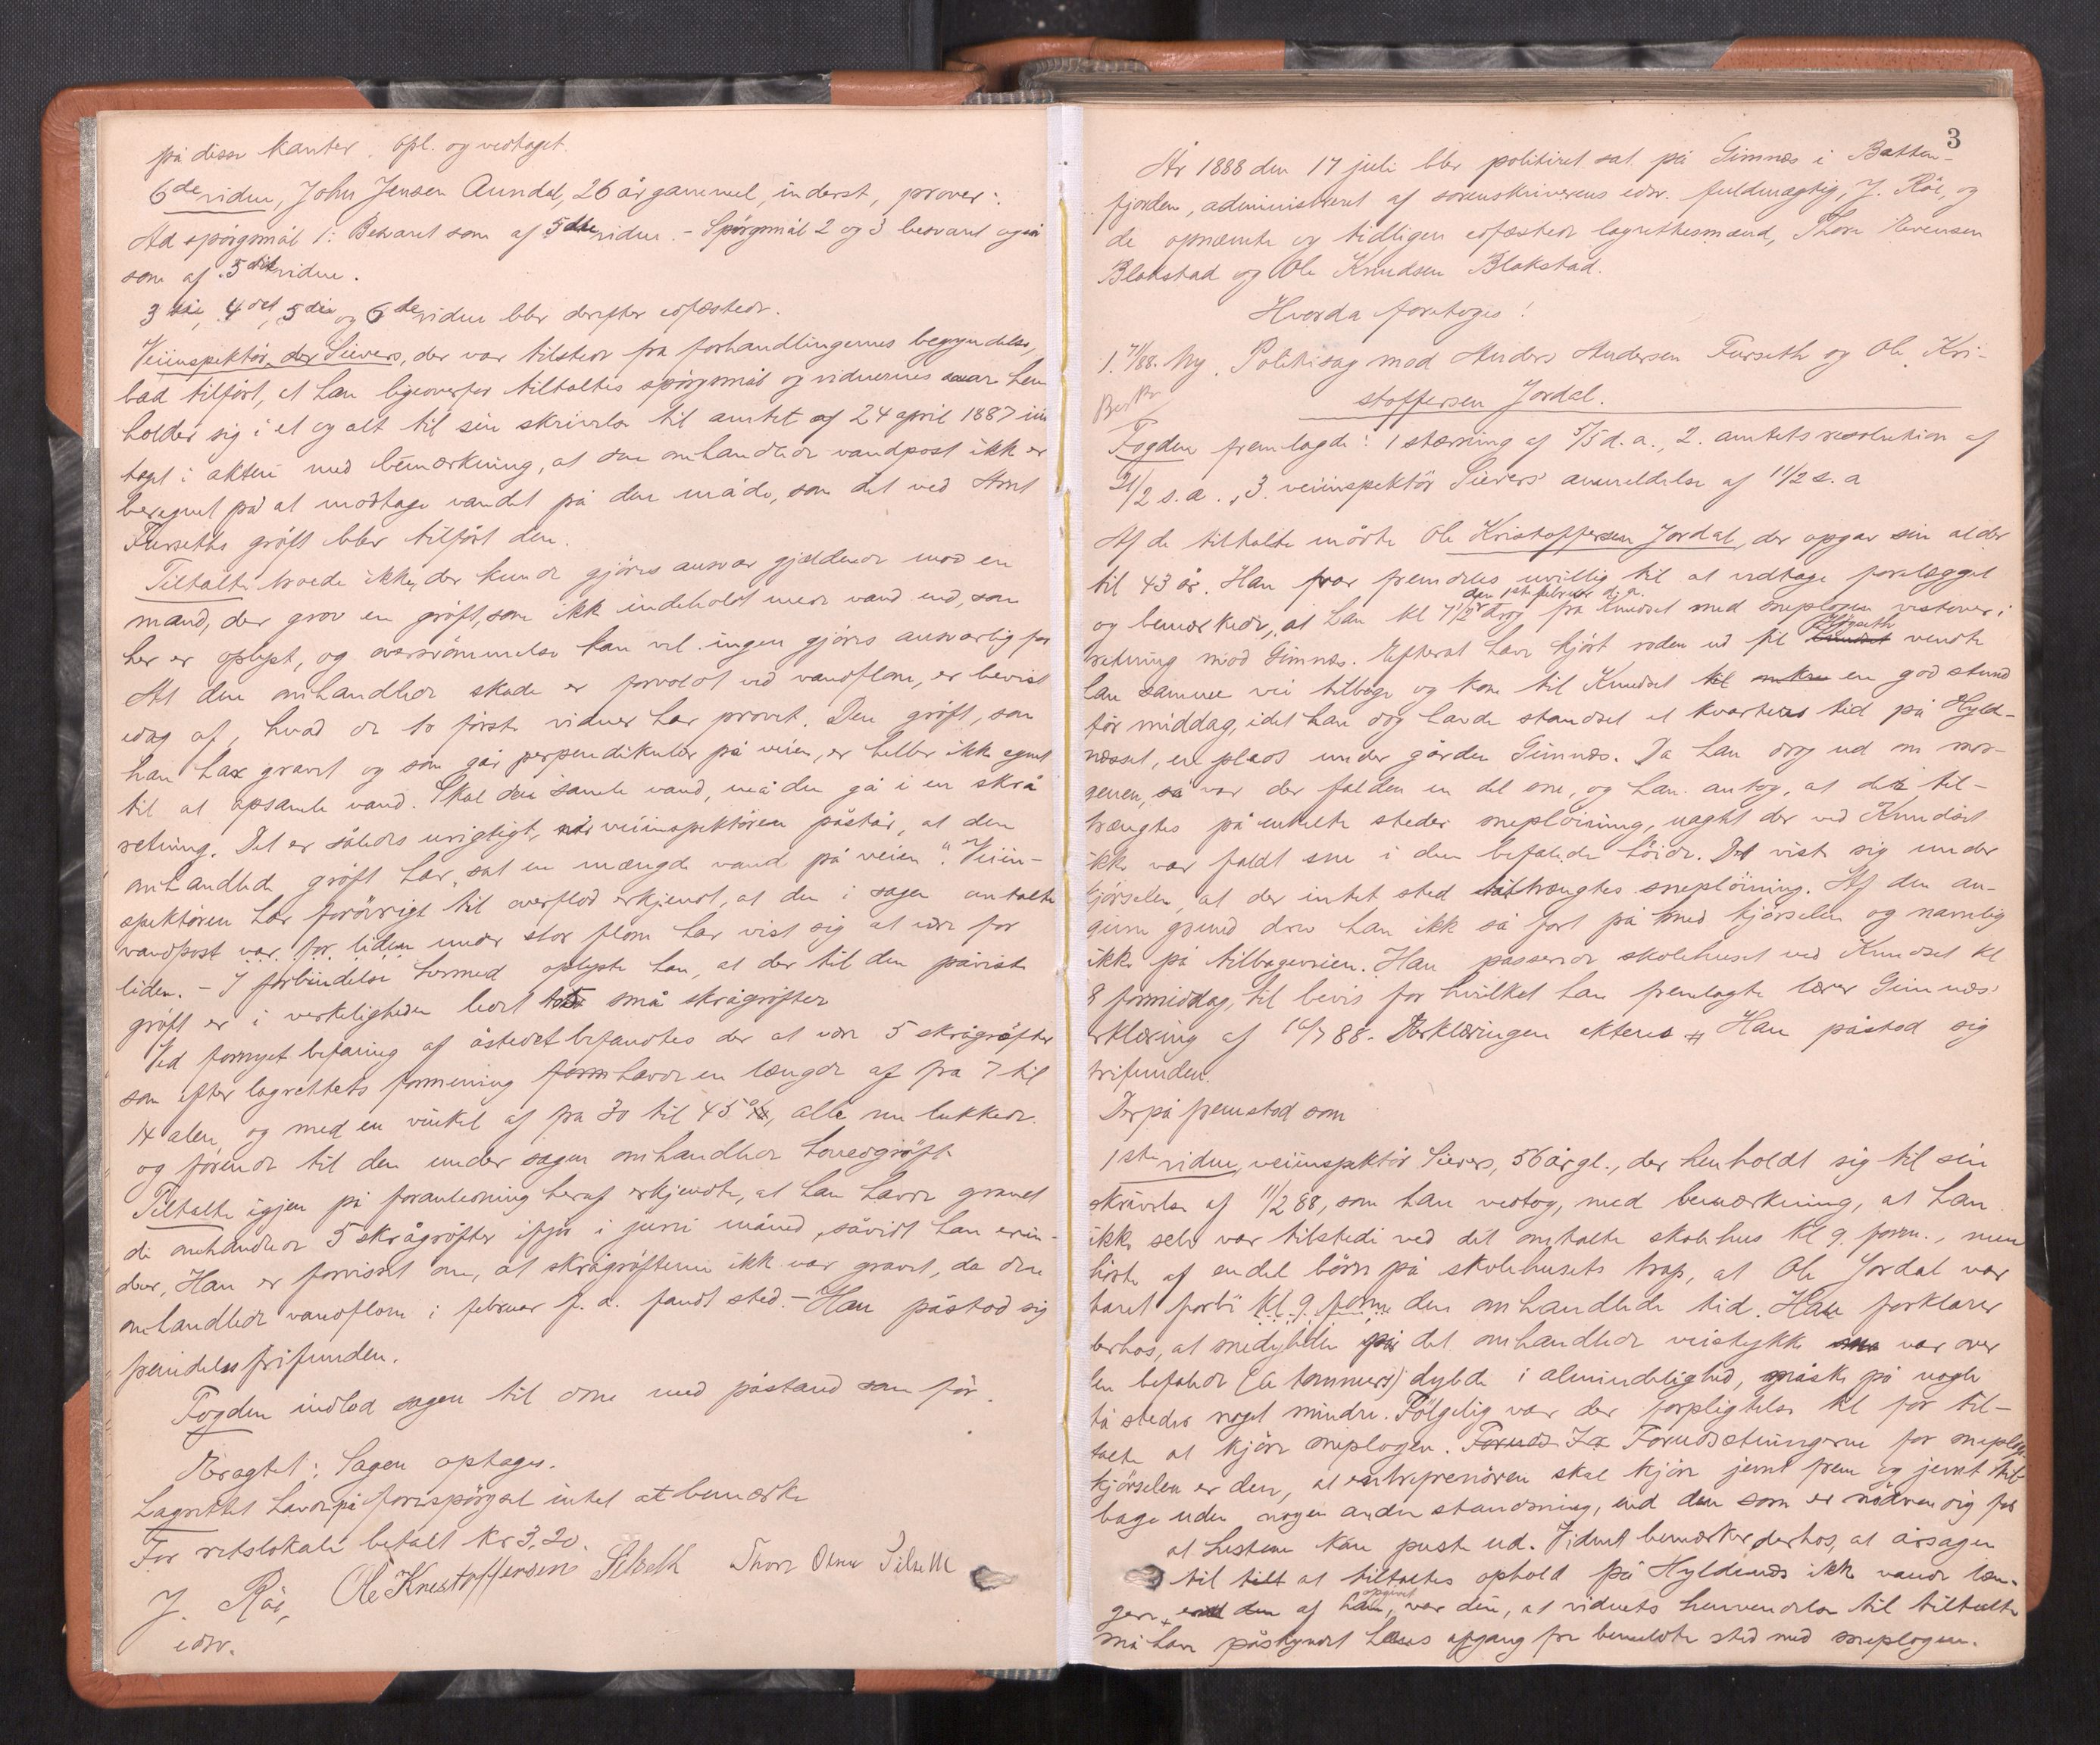 på disse kanter. Opl. og vedtaget.
6de vidne, John Jensen Aundal, 26 år gammel, inderst, prover:
Ad spörgsmål 1: Besvaret som af 5dte vidne. - Spörgsmål 2 og 3 besvaret også
som af 5dte vidne.
3die, 4det, 5die og 6de vidne blev derefter edfæstede.
Veiinspektör der Sievers, der var tilstede fra forhandlingernes begyndelse,
bad tilfört, at han ligeoverfor tiltaltes spörgsmål og vidnernes svar hen
holder sig i et og alt til sin skrivelse til amtet af 24 april 1887 ind
taget i akten med bemærkning, at den omhandlede vandpost ikke er
beregnet på at modtage vandet på den måde, som det ved Arnt
Furseths gröft blev tilfört den.
Tiltalte troede ikke, der kunde gjöres ansvar gjældende mod en
mand, der grov en gröft, som ikke indeholdt mere vand end, som
her er oplyst, og oversvömmelse kan vel ingen gjöres ansvarlig for
At den omhandlede skade er forvoldt ved vandflom, er bevist
idag af, hvad de to förste vidner har provet. Den gröft, som
han har gravet og som går perpendikulær på veien, er heller ikke egnet
til at opsamle vand. Skal den samle vand, må den gå i en skrå
retning. Det er således urigtigt, når veiinspektören påstår, at den
omhandlede gröft har "sat en mængde vand på veien". Veiin-
spektören har forövrigt til overflod erkjendt, at den i sagen omtalte
vandpost var for liden under stor flom har vist sig at være for
liden. - I forbindelse hermed oplyste han, at der til den påviste
gröft er i verkeligheden ledet små skrågröfter
Ved fornyet befaring af åstedet befandtes der at være 5 skrågröfter
som efter lagrettets formening havde en længde af fra 7 til
14 alen og med en vinkel af fra 30 til 45°, alle nu lukkede
og förende til den under sagen omhandlede hovedgröft
Tiltalte igjen på foranledning heraf erkjendte, at han havde gravet
de omhandlede 5 skrågröfter ifjor i juni måned, såvidt han erin-
drer, Han er forvisset om, at skrågröfterne ikke var gravet, da den
omhandlede vandflom i februar f. a. fandt sted. - Han påstod sig
fremdeles frifunden.
Fogden indlod sagen til dom med påstand som för.
Eragtet: Sagen optages.
Lagrettet havde på forespörgsel intet at bemærke
For retslokale betalt kr 3,20.
J. Röe, Ole Knestoffersens Silseth Thore Olsen Silseth
edsv.
3
År 1888 den 17 juli blev politiret sat på Gimnæs i Batten-
fjorden, administreret af sorenskriverens edsv. fuldmægtig, J. Röe, og
de opnævnte og tidligere edfæstede lagrettesmænd, Thore Evensen
Blakstad og Ole Knudsen Blakstad.
Hvorda foretoges:
1. 7/88. Ny. Politisag mod Anders Andersen Furseth og Ole Kri-
stoffersen Jordal.
Fogden fremlagde: 1 stævning af 5/5 d. a., 2. amtets resolution af
21/2 s. a., 3. veiinspektör Sievers' anmeldelse af 11/2 s. a
Af de tiltalte mödte Ole Kristoffersen Jordal, der opgav sin alder
til 43 år. Han var fremdeles uvillig til at vedtage forelægget
den 1ste februar d. a.
og bemærkede, at han kl 7 1/2 drog fra Knudset med sneplogen vestover i
Högseth
retning mod Gimnæs. Efterat have kjört roden ud til Knudset vendte
han samme vei tilbage og kom til Knudset en god stund
för middag, idet han dog havde standset et kvarters tid på Hyld-
næsset, en plads under gården Gimnæs. Da han drog ud om mor-
genen, så var der falden en del sne, og han antog, at det til-
trængtes på enkelte steder sneplöining, uagtet der ved Knudset
ikke var faldt sne i den befalede höide. Det viste sig under
kjörselen, at der intet sted tiltrængtes sneplöining. Af den an-
givne grund drev han ikke så fort på med kjörselen og navnlig
ikke på tilbageveien. Han passerede skolehuset ved Knudset kl
8 formiddag, til bevis for hvilket han fremlagte lærer Gimnæs'
erklæring af 16/7 88. Erklæringen akteres # Han påstod sig
frifunden.
Derpå fremstod som
1ste vidne, veiinspektör Sievers, 56 år gl., der henholdt sig til sin
skrivelse af 11/2 88, som han vedtog, med bemærkning, at han
ikke selv var tilstede ved det omtalte skolehus kl 9 form., men
hörte af endel börn på skolehusets trap, at Ole Jordal var
faret forbi kl. 9 form den omhandlede tid. Han forklarer
derhos, at snedybden på det omhandlede veistykke var over
den befalede (6 tommers) dybde i almindelighed, måske på nogle
få steder noget mindre. Fölgelig var der forpligtelse til for til-
talte at kjöre sneplogen. Forudsætningerne for sneplog
kjörselen er den, at entreprenören skal kjöre jevnt frem og jevnt til-
bage uden nogen anden standsning, end den som er nödvendig for
at hestene kan puste ud. Vidnet bemærker derhos, at årsagen
til at tiltaltes ophold på Hyldnæs ikke varede læn-
opgivet
gere, end den af ham, var den, at vidnets henvendelse til tiltalte
må have påskyndt hans afgang fra bemeldte sted med sneplogen.